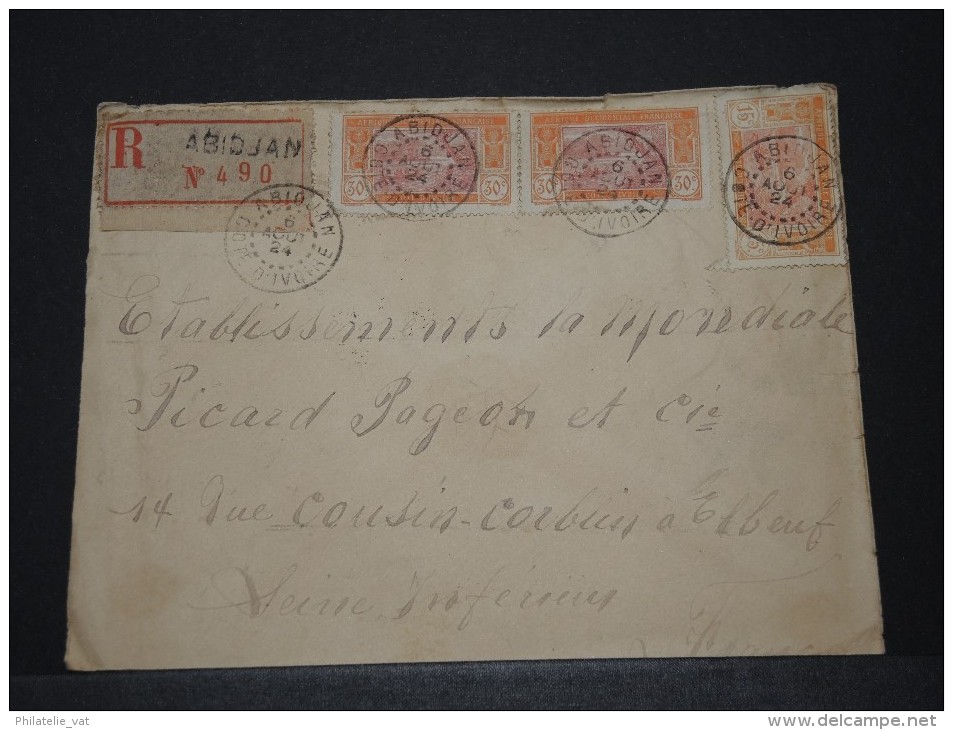 R ABIDJAN
Nº 490
AFRIQUE OCCIDENTALE FRANÇAISE
30c 30c
AFRIQUE OCCIDENTALE FRANÇAISE
30c 30c
15
ABIDJAN
6
AOUT
24
CÔTE D'IVOIRE
ABIDJAN
6
AOUT
24
D'IVOIRE
ABIDJAN
6
AOUT
24
D'IVOIRE
ABIDJAN
6
AOUT
24
D'IVOIRE
Etablissements la Mondiale
Picard Pageon et Cie
14 Rue Cousin-Corblin à Elbeuf
Seine Inférieur
France
Philatelie_vat
www.delcampe.net